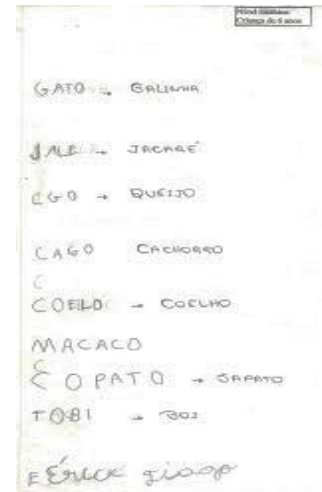 Criança de 6 anos
GATO → GALINHA
JALE → JACARÉ
CGO → QUEIJO
CAGO CACHORRO
C
COELO → COELHO
MACACO
C
C O PATO → SAPATO
TOBI → BOI
E ÉRICK